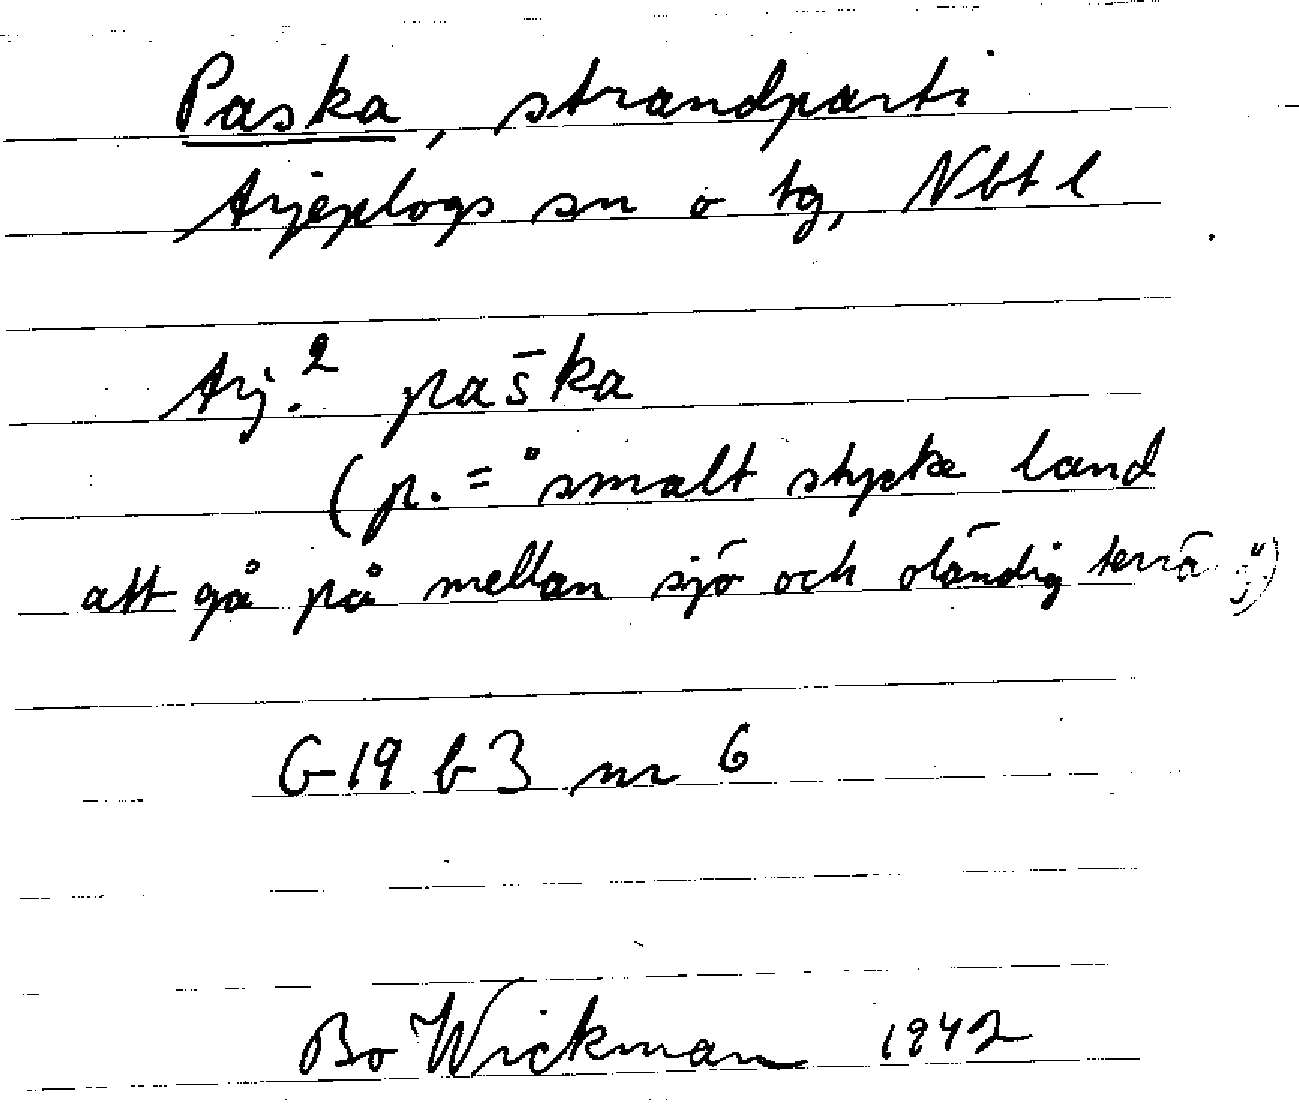 Paska, strandparti
Arjeplogs sn o tg, Nbt l
Arj.² pas̄ka
(p. = "smalt stycke land
att gå på mellan sjö och oländig
G 19 b 3 nr 6
Bo Wickman 1942